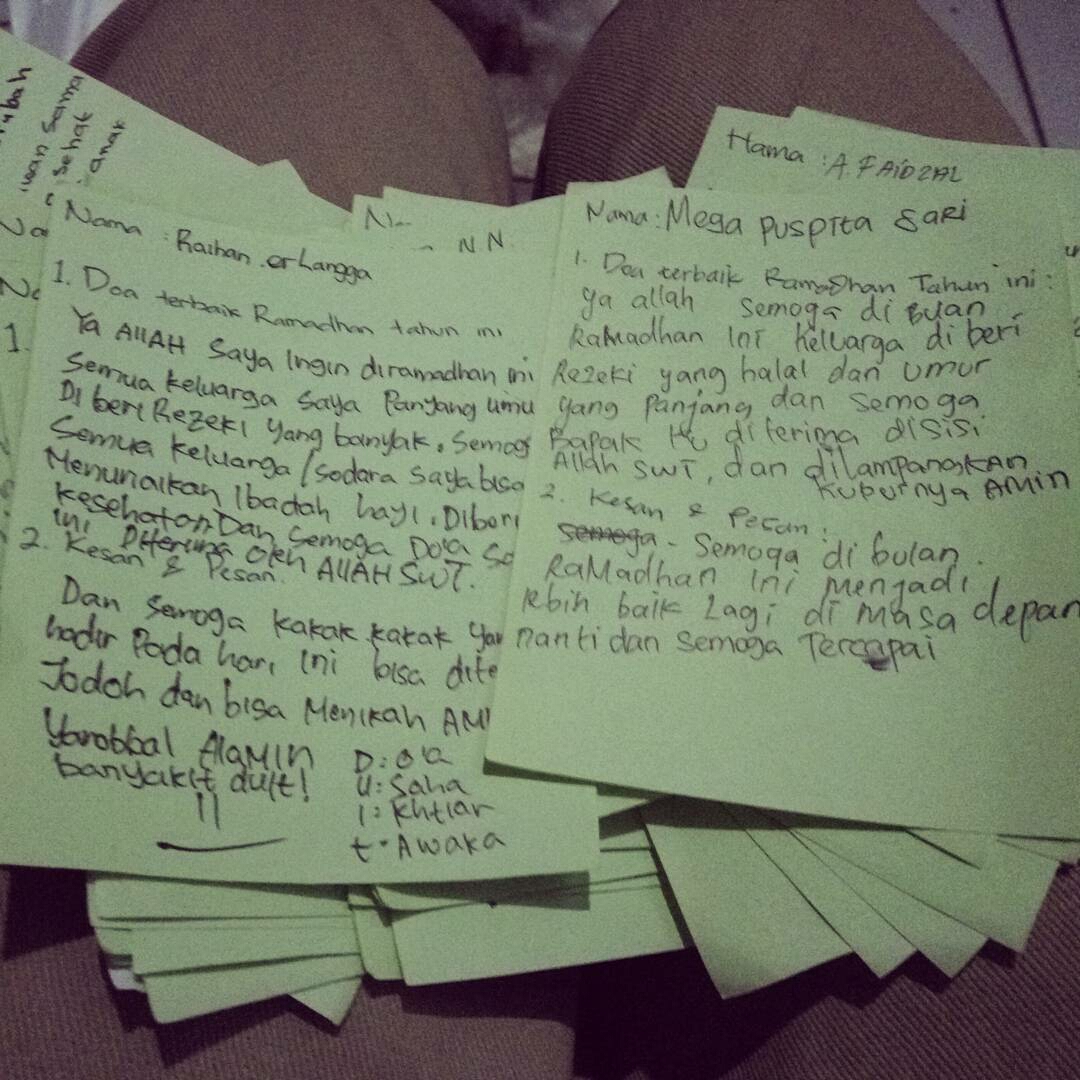 Nama : Raihan erlangga
1. Doa terbaik Ramadhan tahun ini
Ya AllAH Saya Ingin diramadhan ini
Semua keluarga saya Panyang umu
Di beri Rezeki yang banyak. Semog
Semua keluarga/sodara saya bisa
Menunaikan Ibadah hayi. Diberi
kesehatan Dan Semoga Do'a Sa
ini Diterima oleh AllAH SWT.
2. Kesan & Pesan.
Dan Semoga kakak kakak yan
hadir Pada hari ini bisa dite
Jodoh dan bisa Menikah AMI
Yarobbal AlaMIn
banyakit duit!
D: o'a
U: Saha
I: khtiar
t: Awaka
Nama : A. FAIDZAL
Nama : Mega puspita SaRi
1. Doa terbaik Ramadhan Tahun ini :
ya allah semoga di Bulan
Ramadhan Ini kelluarga di beri
Rezeki yang halal dan umur
yang panjang dan semoga
Bapak Ku diterima disisi
Allah SWT, dan dilampangkan
kuburnya AMIN
2. Kesan & Pesan :
semoga - Semoga di bulan
RaMadhan ini menjadi
lebih baik lagi di masa depan
nanti dan semoga Tercapai
N N
ubah
wan sama
sehat
anak
Na
Na
1.